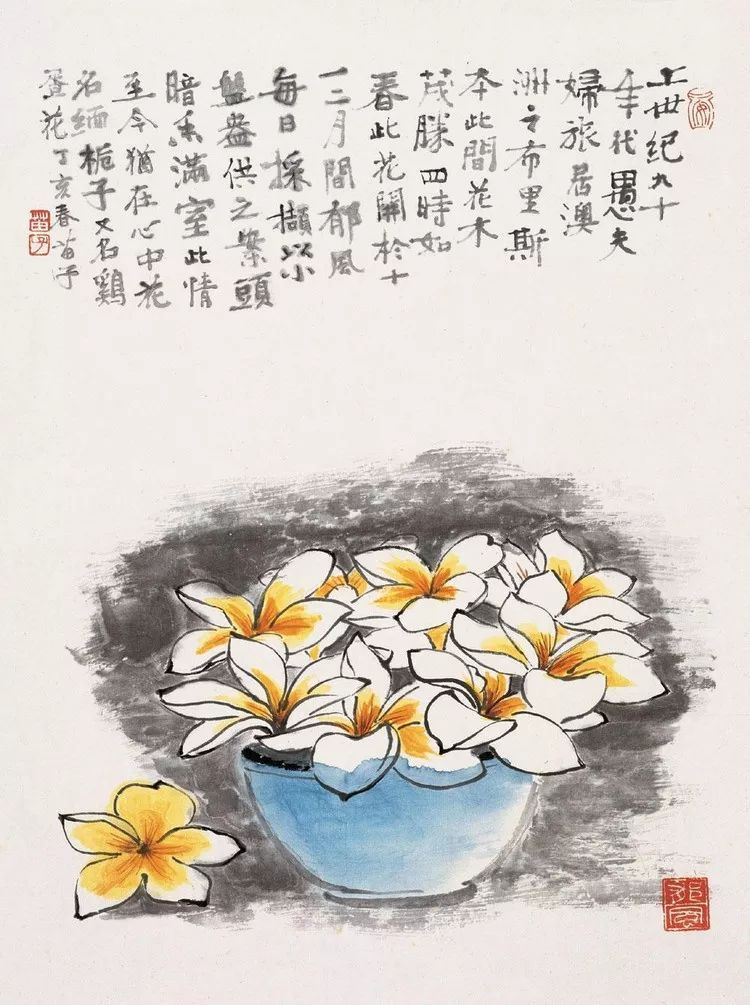 上世紀九十
年代愚夫
婦旅居澳
洲之布里斯
本此間花木
茂勝四時如
春此花開於十
一二月間郁風
每日採擷以小
盤盎供之案頭
暗香滿室此情
至今猶在心中花
名緬栀子又名鷄
蛋花丁亥春苗子
苗子
郁風